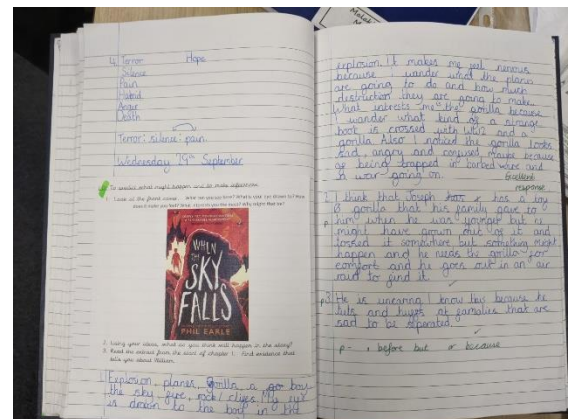 4. Terror Hope
Silence
Pain
Hatred
Anger
Death
Terror; silence; pain.
Wednesday 29th September
To predict what might happen and to make inferences
1. Look at the front cover.
WHEN
THE
SKY
FALLS
PHIL EARLE
2. Using your ideas, what do you think will happen in the story?
3. Read an extract from the start of chapter 1. Find evidence that
tells you about
Explosion, planes, gorilla, a boy
the sky, fire, rock/cliffs. My eye
is drawn to the boy in the
explosion. It makes me feel nervous
because I wander what the plans
are going to do and how much
destruction they are going to make.
What intrests me is the gorilla because
I wander what kind of a strange
book is crossed with WW2 and a
gorilla. Also I noticed the gorilla looks
sad, angry and confused maybe because
of being trapped in barbed wire and
a war going on.
Excellent
response
2. I think that Joseph has a toy
gorilla that his family gave to
p him when he was younger but he
might have grown out of it and
tossed it somewhere but something might
happen and he needs the gorilla for
comfort and he goes out in an air
raid to find it.
p3. He is uncaring I know this because he
tuts and huffs at families that are
sad to be seperated.
p - , before but or because